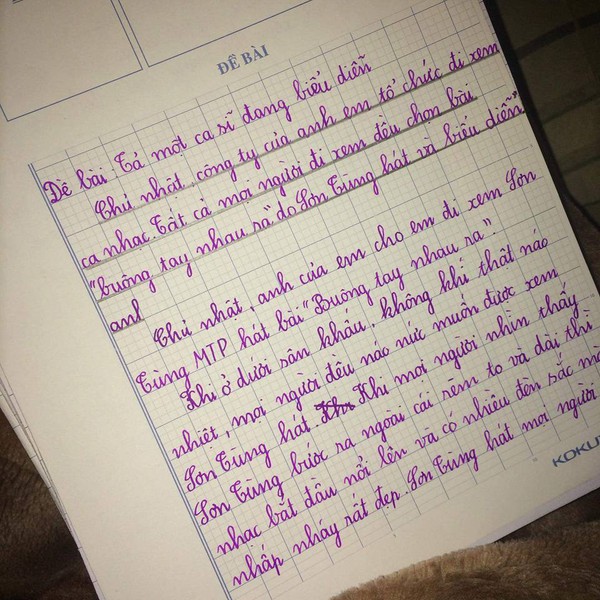 ĐỀ BÀI
Đề bài: Tả một ca sĩ đang biểu diễn
Chủ nhật, công ty của anh em tổ chức đi xem
ca nhạc. Tất cả mọi người đi xem đều chọn bài
"buông tay nhau ra" do Sơn Tùng hát và biểu diễn.
anh
Chủ nhật, anh của em cho em đi xem Sơn
Tùng MTP hát bài "Buông tay nhau ra".
Khi ở dưới sân khấu, không khí thật náo
nhiệt, mọi người đều náo nức muốn được xem
Sơn Tùng hát. Khi mọi người nhìn thấy
Sơn Tùng bước ra ngoài cái rèm to và dài thì
nhạc bắt đầu nổi lên và có nhiều đèn sắc mà
nhấp nháy rất đẹp. Sơn Tùng hát mọi người
KOKU